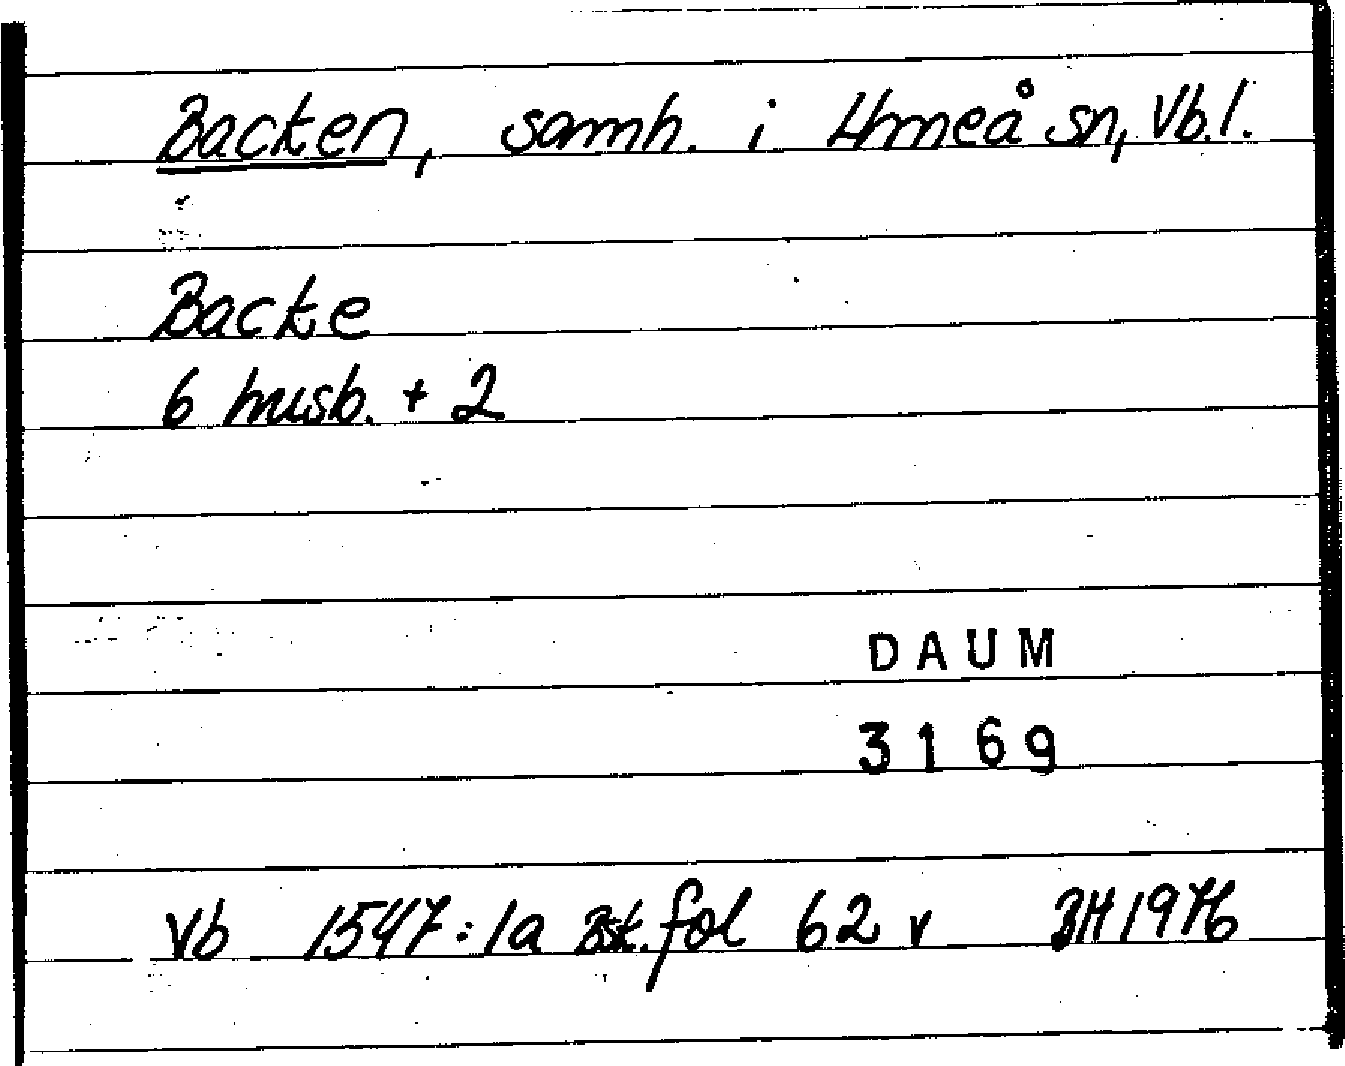 Backen, samh. i Umeå sn, Vb.l.
Backe
6 husb. + 2
DAUM
3169
Vb 1547:1a Bsk. fol 62 v BH 1976